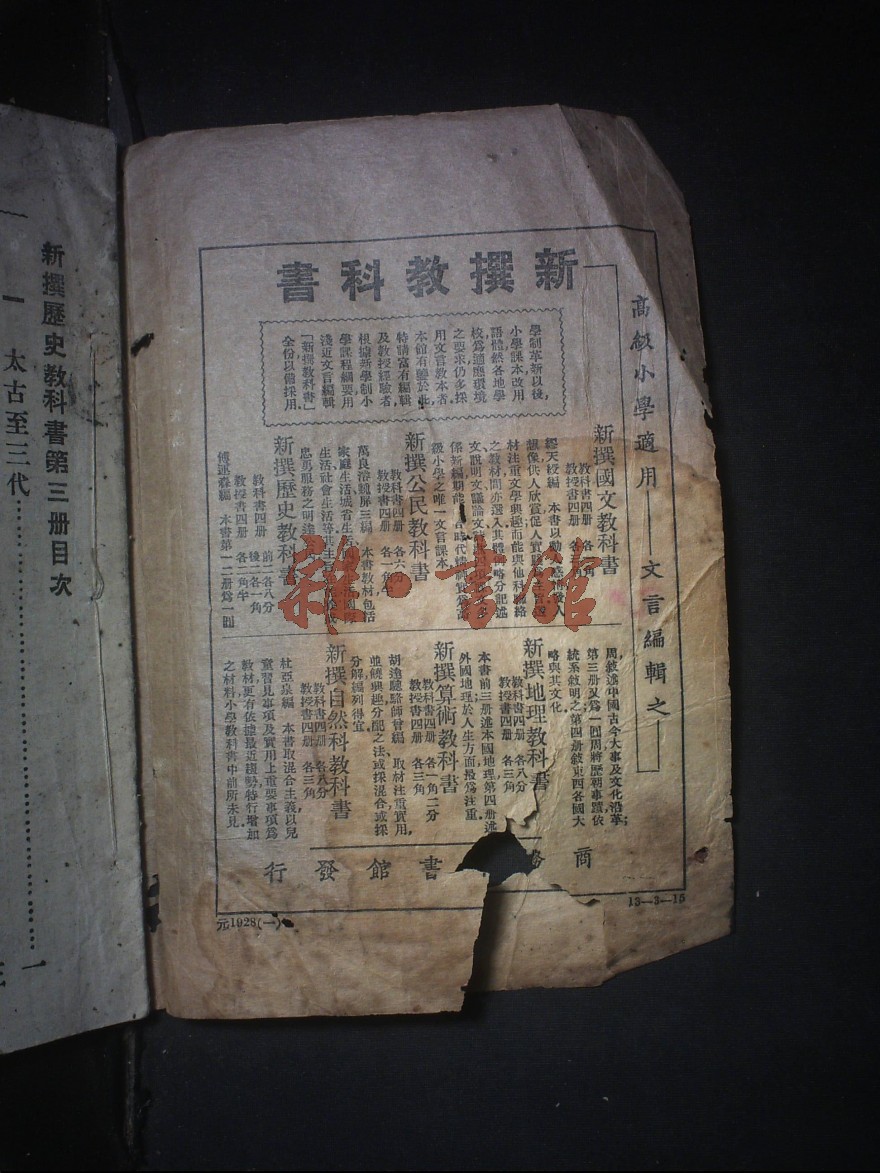 高級小學適用——文言編輯之
新撰教科書
學制革新以後,
小學課本改用
語體然各地學
校爲適應環境
之要求仍多採
用文言教本者
本館有鑒於此
特請富有編輯
及教授經驗者,
根據新學制小
學課程綱要用
淺近文言編輯
「新撰教科書」
全份以備採用
新撰國文教科書
教科書四册 各 角
教授書四册 各
繆天綬編 本書以動
想像供人欣賞促人實
材注重文學興趣而能與他科聯絡
之教材間亦選入其體例略分記述
文說明文議論文
係新編期能 合時代精神實爲高
級小學之唯一文言課本
新撰公民教科書
教科書四册 各六分
教授書四册 各一角
萬良濬 編 本書教材包括
家庭生活城省生活
生活社會生活等其主
忠勇服務之明達
新撰歷史教科書
教科書四册 前二各八分 後二各一角
教授書四册 各一角半
傅運森編 本書第一二册爲一圓
周敘述中國古今大事及文化沿革;
第三册又爲一圓周將歷朝事蹟依
統系敘明之第四册敘東西各國大
略與其文化
新撰地理教科書
教科書四册 各八分
教授書四册 各三角
本書前三册述本國地理第四册述
外國地理於人生方面極爲注重
新撰算術教科書
教科書四册 各一角二分
教授書四册 各三角
胡達聰駱師曾編 取材注重實用,
並饒興趣分配之法或採混合或採
分解編列得宜
新撰自然科教科書
教科書四册 各八分
教授書四册 各三角
杜亞泉編 本書取混合主義以兒
童習見事項及實用上重要事項爲
教材更有依據最近趨勢特行增加
之材料小學教科書中前所未見
商務 書館發行
13—3—15
元1928(一)
新撰歷史教科書第三册目次
一 太古至三代…………………一
雜·書館